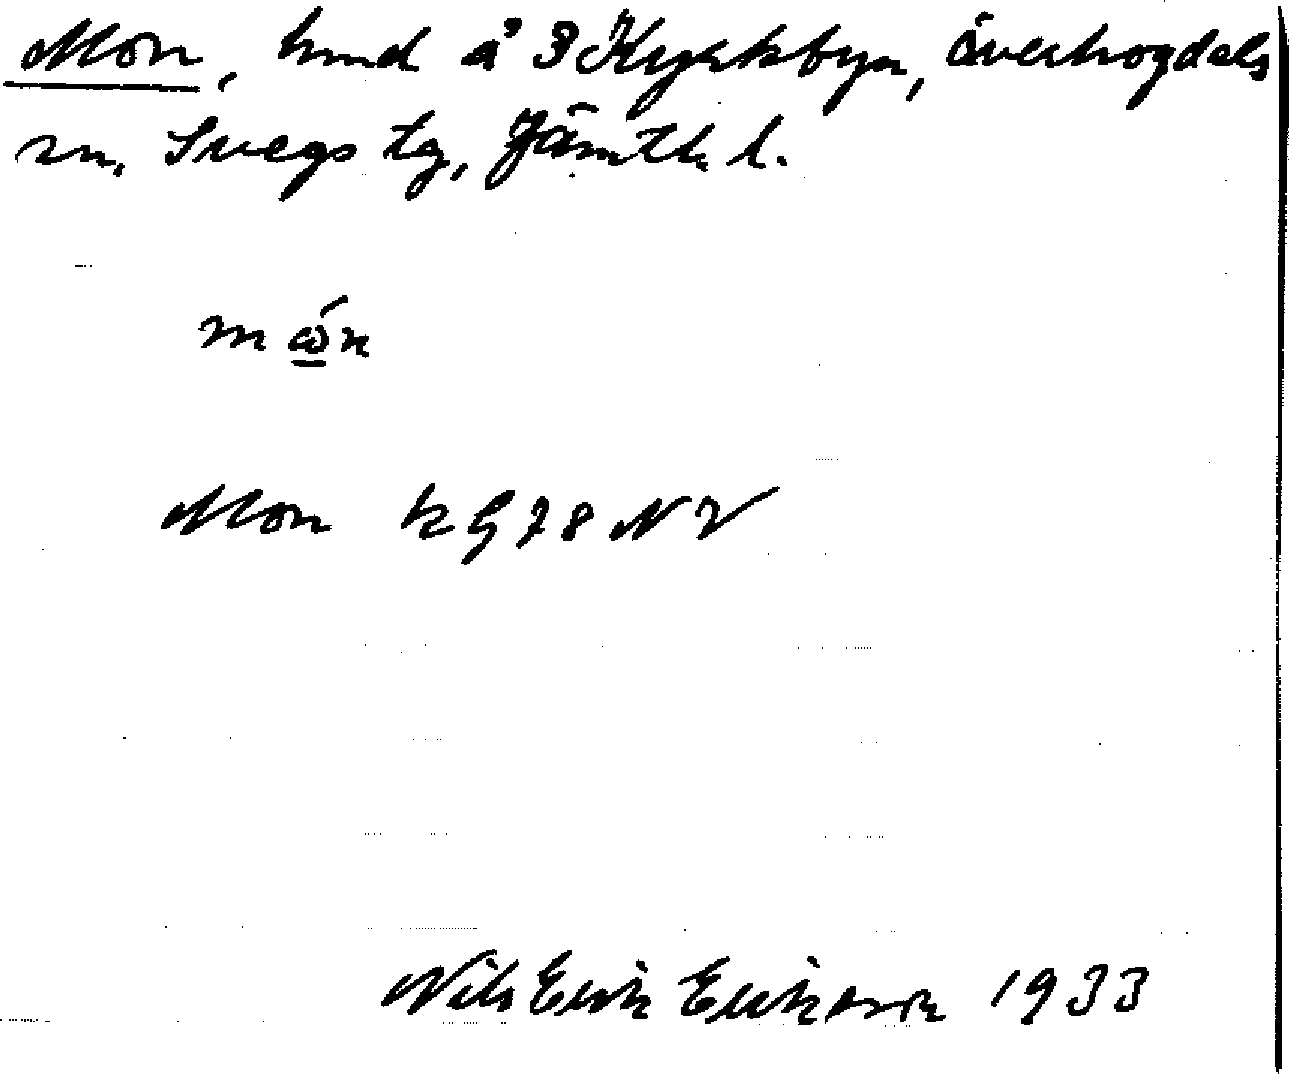 Mon, hmd å 3 Kyrkbyn, Överhogdals
sn, Svegs tg, Jämtl. l.
mώn
Mon kG78NV
Nils Erik Eriksson 1933